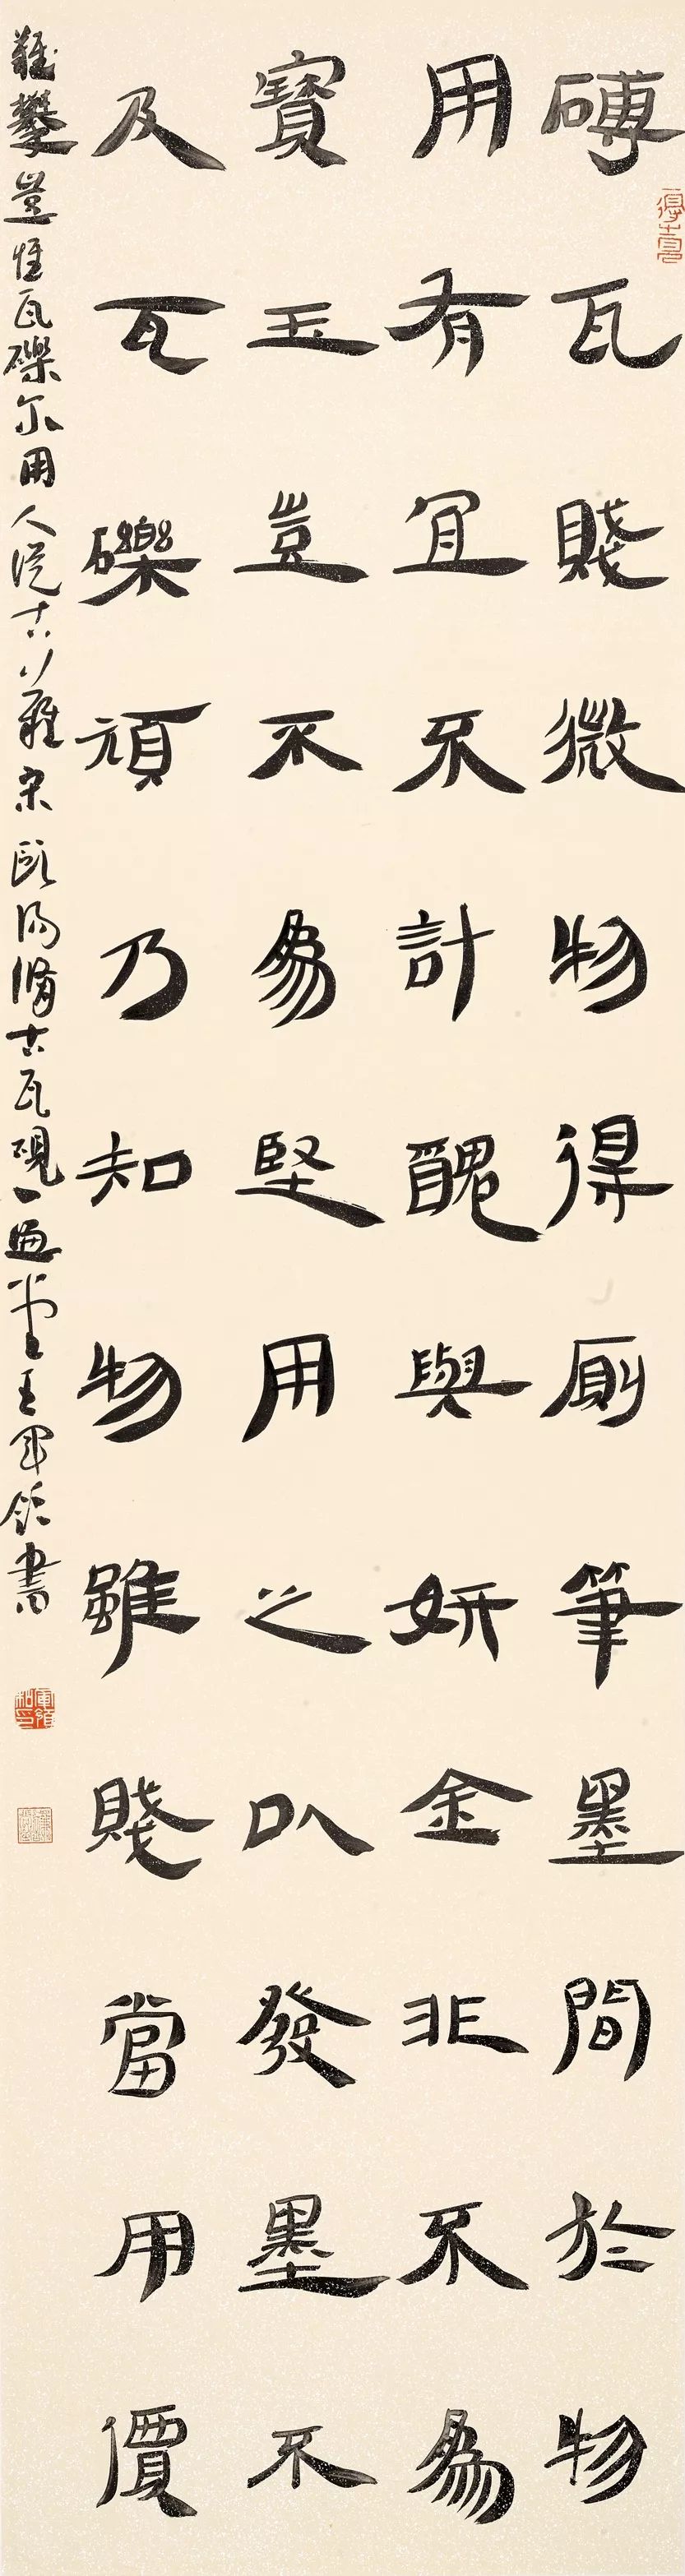 磚瓦賤微物得厠筆墨間於物
用有宜不計醜與妍金非不為
寶玉豈不為堅用之以發墨不
及瓦礫頑乃知物雖賤當用價
難攀豈惟瓦礫尔用人從古難宋歐陽脩古瓦硯一過堂王軍領書